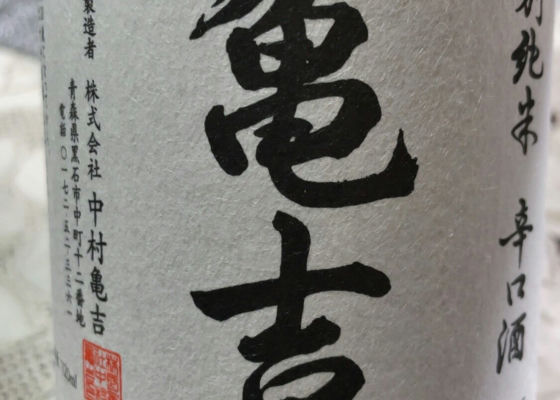 別純米 辛口酒
亀吉
製造者 株式会社 中村亀吉
青森県黒石市中町十二番地
電話 〇一七二-五二-三三六一
720ml